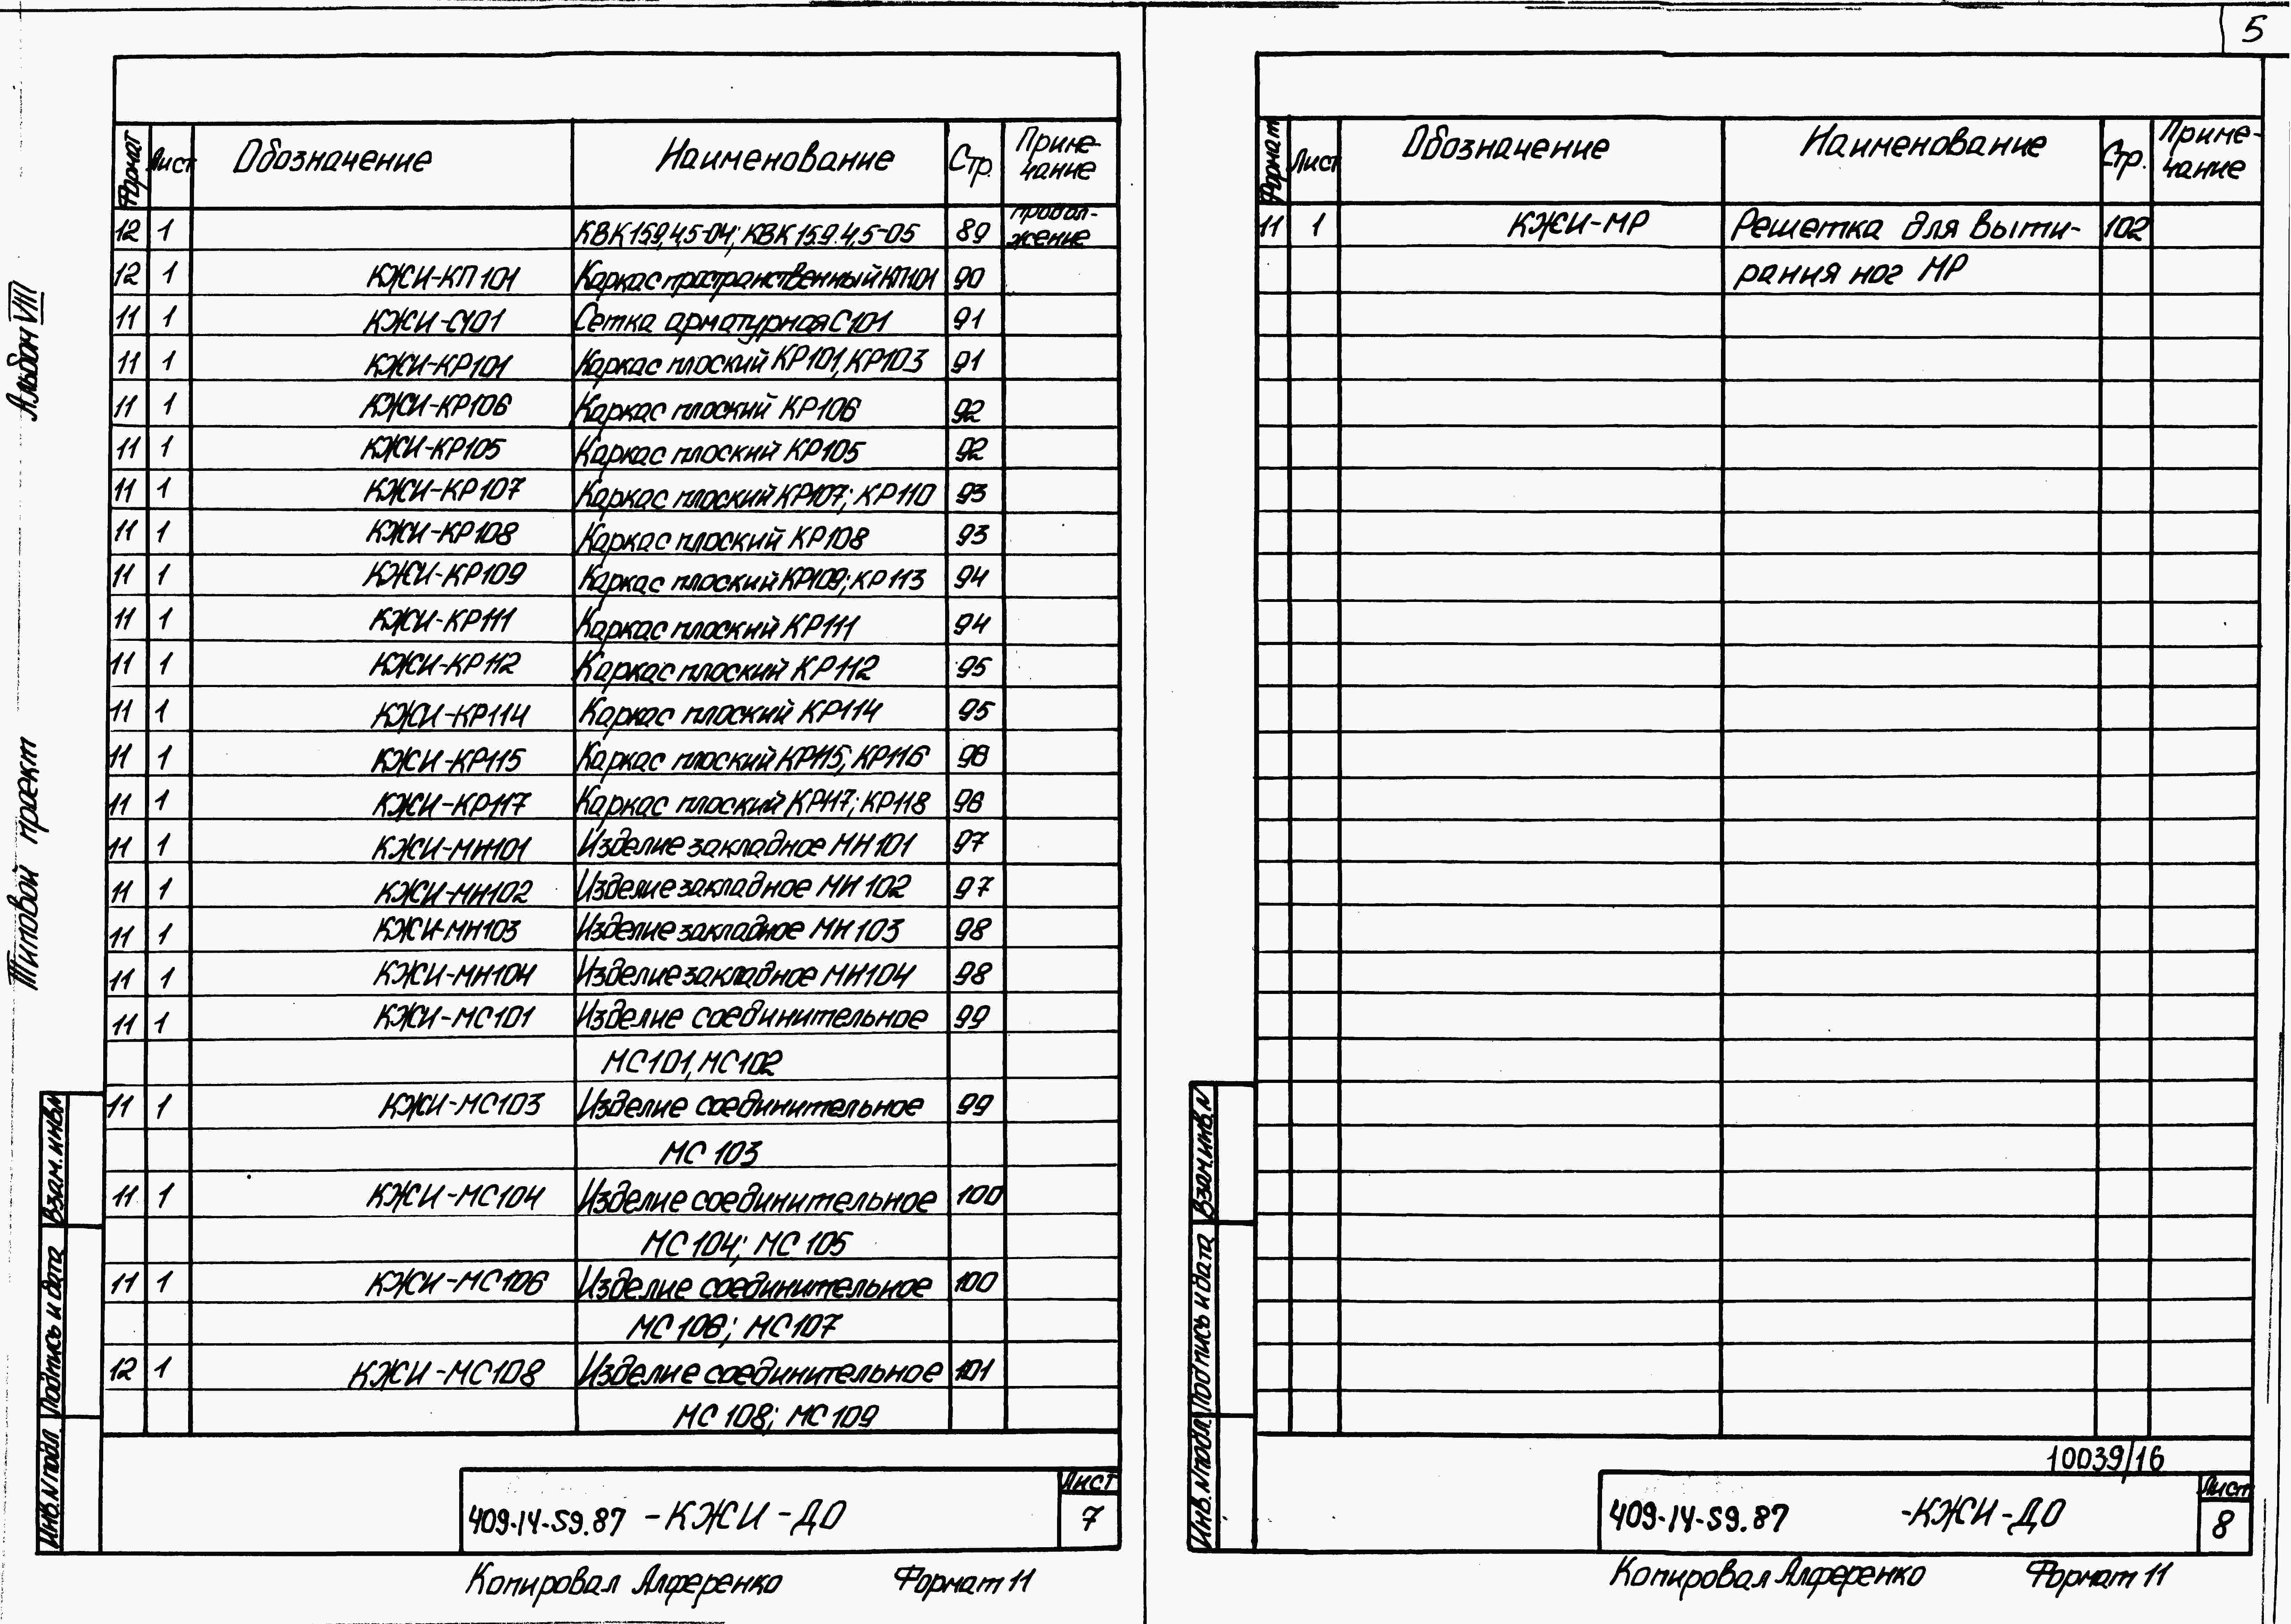 5
Альбом VIII
Типовой проект
Формат Лист Обозначение Наименование Стр. Приме-
чание
12 1 КВК 159,4,5-04; КВК 15.9.4,5-05 89 продол-
жение
12 1 КЖИ-КП 101 Каркас пространственный КП101 90
11 1 КЖИ-С101 Сетка арматурная С101 91
11 1 КЖИ-КР101 Каркас плоский КР101, КР103 91
11 1 КЖИ-КР106 Каркас плоский КР106 92
11 1 КЖИ-КР105 Каркас плоский КР105 92
11 1 КЖИ-КР107 Каркас плоский КР107; КР110 93
11 1 КЖИ-КР108 Каркас плоский КР108 93
11 1 КЖИ-КР109 Каркас плоский КР109; КР113 94
11 1 КЖИ-КР111 Каркас плоский КР111 94
11 1 КЖИ-КР112 Каркас плоский КР112 95
11 1 КЖИ-КР114 Каркас плоский КР114 95
11 1 КЖИ-КР115 Каркас плоский КР115; КР116 96
11 1 КЖИ-КР117 Каркас плоский КР117; КР118 96
11 1 КЖИ-МН101 Изделие закладное МН101 97
11 1 КЖИ-МН102 Изделие закладное МН 102 97
11 1 КЖИ-МН103 Изделие закладное МН 103 98
11 1 КЖИ-МН104 Изделие закладное МН104 98
11 1 КЖИ-МС101 Изделие соединительное 99
МС101, МС102
11 1 КЖИ-МС103 Изделие соединительное 99
МС 103
11 1 КЖИ-МС104 Изделие соединительное 100
МС 104; МС 105
11 1 КЖИ-МС106 Изделие соединительное 100
МС 106; МС107
12 1 КЖИ-МС108 Изделие соединительное 101
МС 108; МС 109
Взам.инв.N
Подпись и дата
Инв.N подл.
409-14-59.87 -КЖИ-ДО
Лист
7
Копировал Алференко Формат 11
Формат Лист Обозначение Наименование Стр. Приме-
чание
11 1 КЖИ-МР Решетка для выти- 102
рания ног МР
Взам.инв.N
Подпись и дата
Инв.N подл.
10039/16
409-14-59.87 -КЖИ-ДО
Лист
8
Копировал Алференко Формат 11